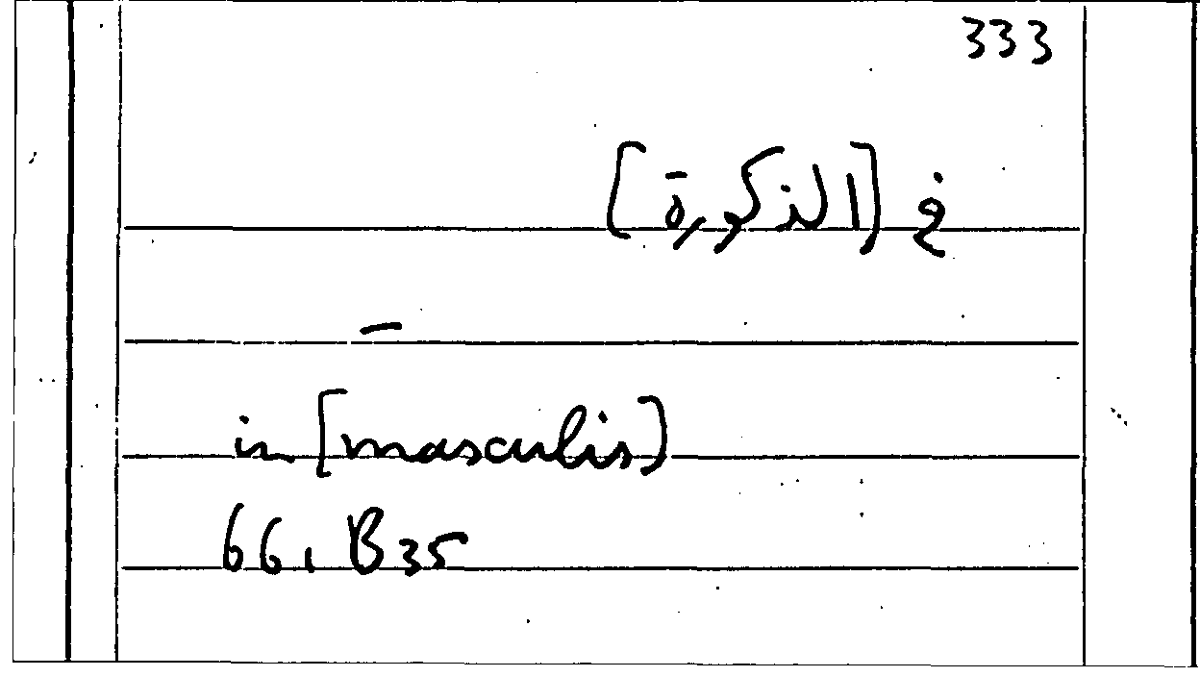 333
في [الذكورة]
—
in [masculis]
66, B35